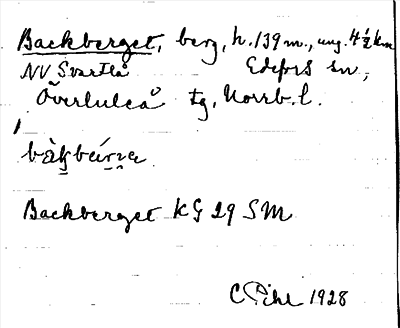 Backberget, berg, h. 139 m., ung. 4½ km
NV Svartlå Edefors sn,
Överluleå tg, Norrb. l.
Backberget KG 29 SM
C Pihl 1928